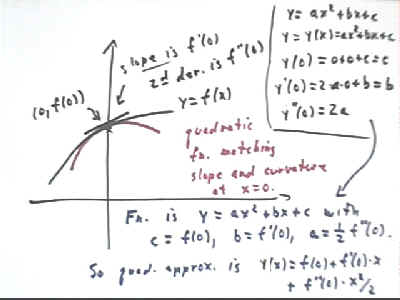 slope is f'(0)
2nd der. is f''(0)
(0, f(0))
y = f(x)
quadratic
fn. matching
slope and curvature
at x=0.
y = ax²+bx+c
y = y(x) = ax²+bx+c
y(0) = 0+0+c = c
y'(0) = 2·a·0+b = b
y''(0) = 2a
Fn. is y = ax²+bx+c with
c = f(0), b = f'(0), a = ½ f''(0).
So quad. approx. is y(x) = f(0) + f'(0)·x
+ f''(0)·x²/2